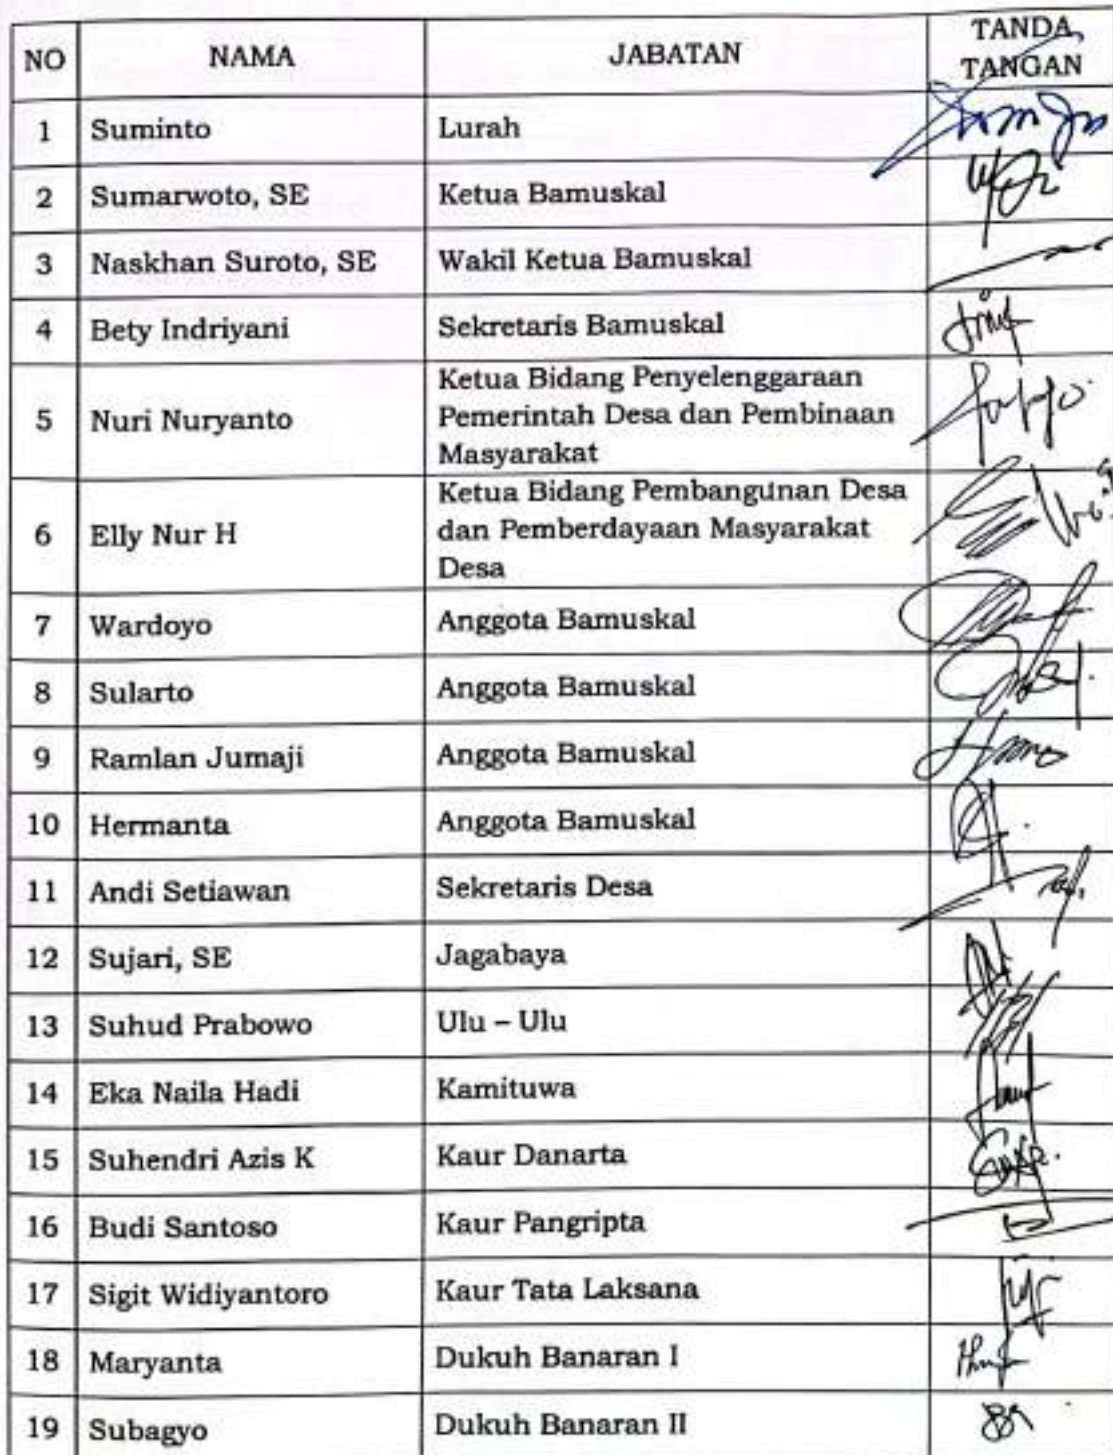 NO NAMA JABATAN TANDA
TANGAN
1 Suminto Lurah
2 Sumarwoto, SE Ketua Bamuskal
3 Naskhan Suroto, SE Wakil Ketua Bamuskal
4 Bety Indriyani Sekretaris Bamuskal
5 Nuri Nuryanto Ketua Bidang Penyelenggaraan
Pemerintah Desa dan Pembinaan
Masyarakat
6 Elly Nur H Ketua Bidang Pembangunan Desa
dan Pemberdayaan Masyarakat
Desa
7 Wardoyo Anggota Bamuskal
8 Sularto Anggota Bamuskal
9 Ramlan Jumaji Anggota Bamuskal
10 Hermanta Anggota Bamuskal
11 Andi Setiawan Sekretaris Desa
12 Sujari, SE Jagabaya
13 Suhud Prabowo Ulu – Ulu
14 Eka Naila Hadi Kamituwa
15 Suhendri Azis K Kaur Danarta
16 Budi Santoso Kaur Pangripta
17 Sigit Widiyantoro Kaur Tata Laksana
18 Maryanta Dukuh Banaran I
19 Subagyo Dukuh Banaran II